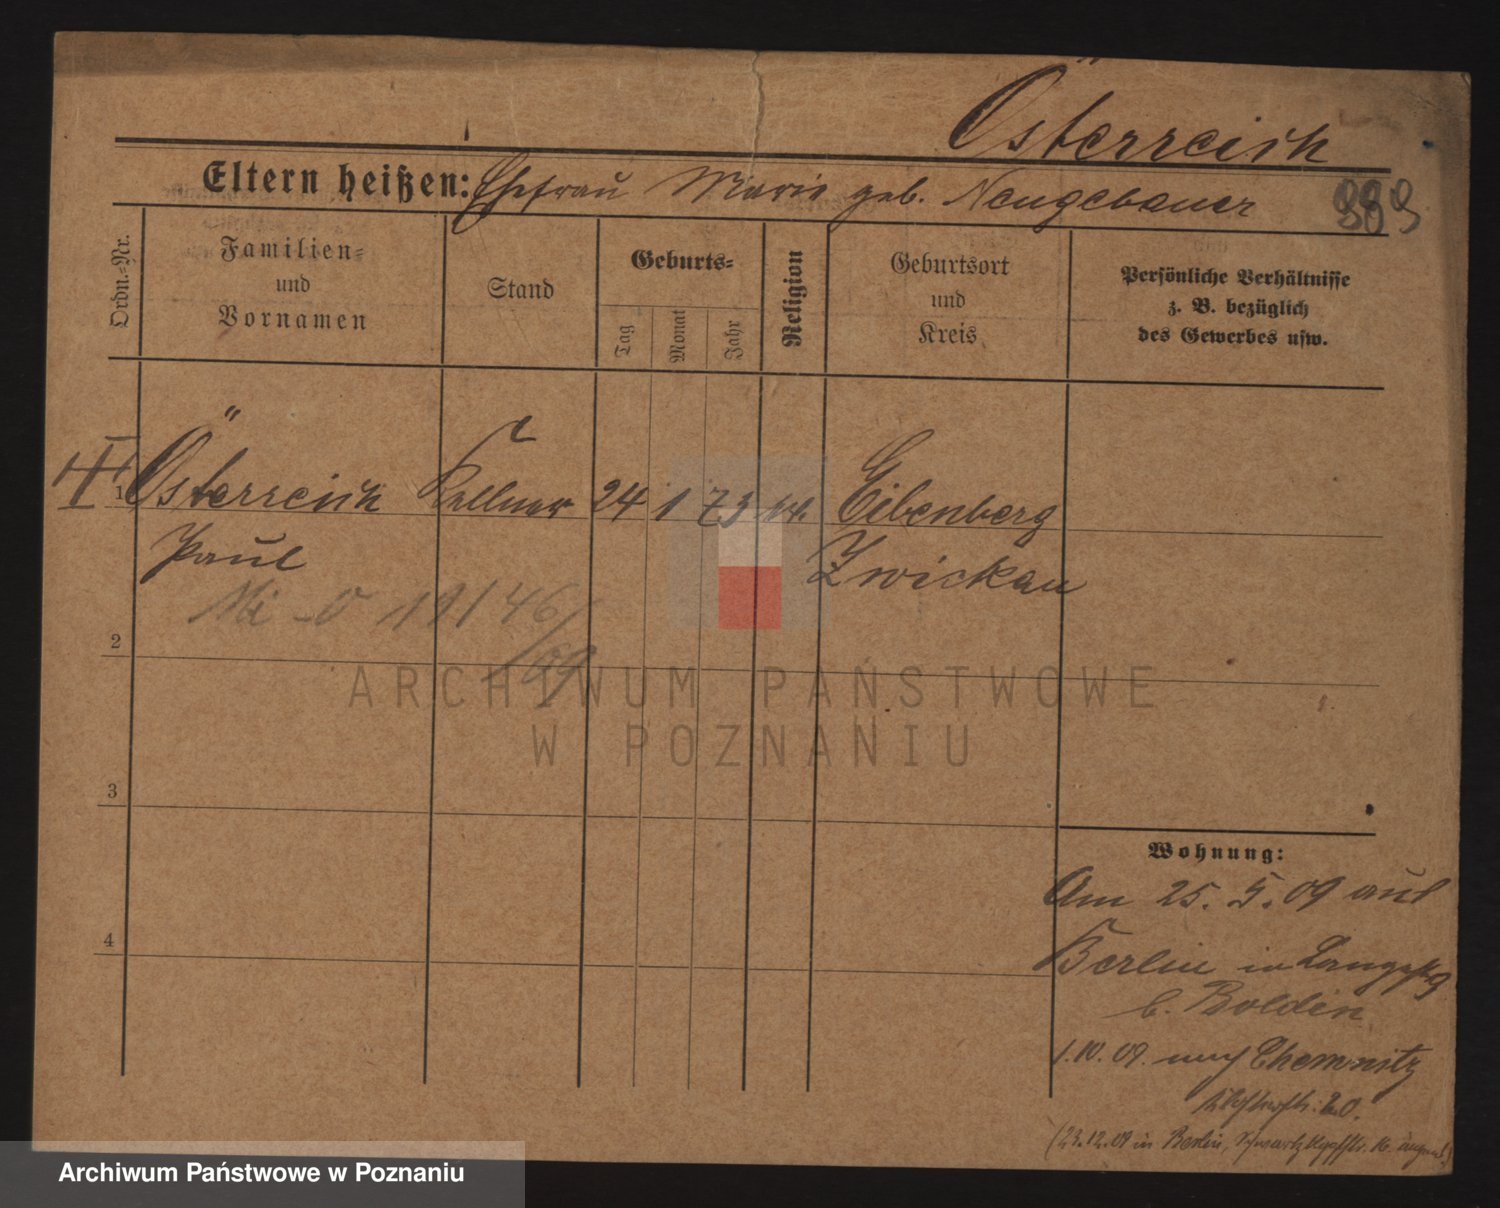 Österreich
Eltern heißen: Ehefrau Marie geb. Neugebauer
Ordn.=Nr.
Familien=
und
Vornamen
Stand
Geburts=
Tag
Monat
Jahr
Religion
Geburtsort
und
Kreis
Persönliche Verhältnisse
z. B. bezüglich
des Gewerbes usw.
1 Österreich Kellner 24 1 73 Eibenberg
Paul Zwickau
2
3
4
Wohnung:
Am 25. 5. 09 aus
Berlin in
b. Boldin
1.10.09. nach Chemnitz
20.
(23.12.09 in Berlin, 16
ARCHIWUM PAŃSTWOWE
W POZNANIU
Archiwum Państwowe w Poznaniu